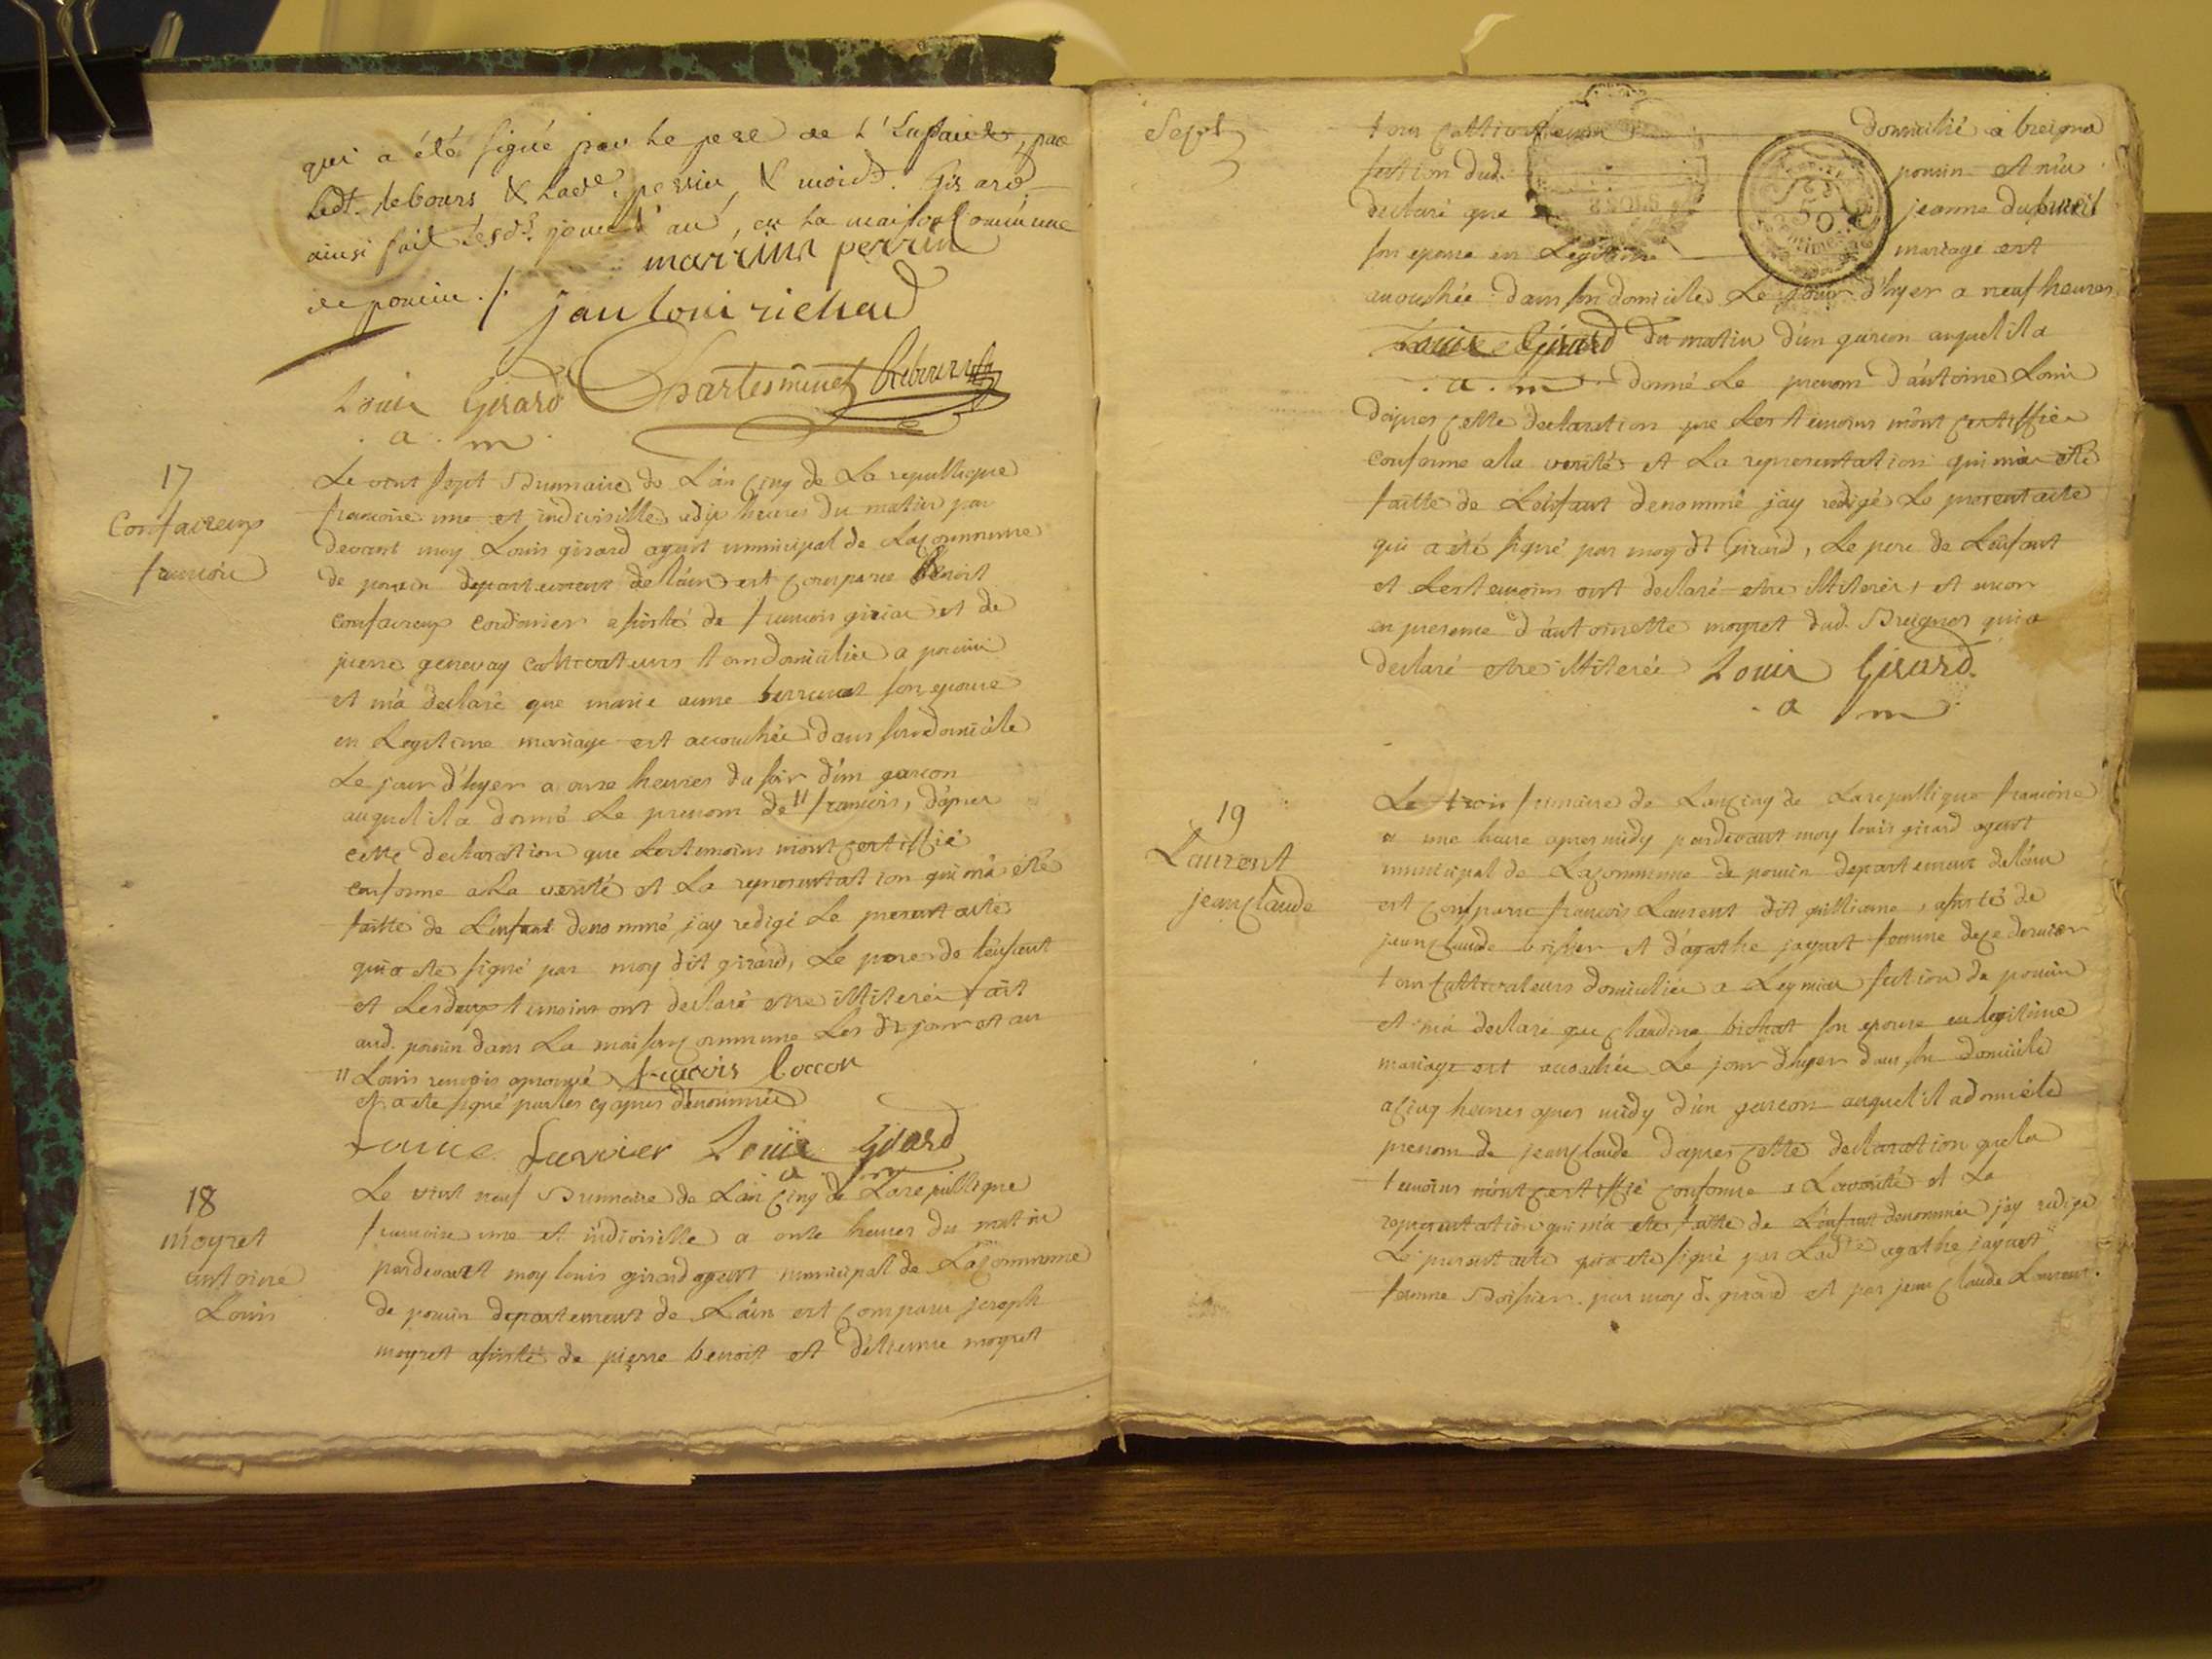 qui a été signé par le pere de l'Enfant, par
ledt. lebours & lade. perrin, & moidt. Girard
ainsi fait lesdts. jour & an, en la maison Commune
de poncin ./.
marrina perrin
jan loui richard
Louis Girard Chartesminet Rebours
a. m.
17
Confaireux
francois
Le vint sept Brumaire de L'an Cinq de La republique
francoise une et indivisible a dix heures du matin par
devant moy Louis girard agent municipal de La Commune
de poncin departement de l'ain est Comparu Benoit
confaireux cordonier assisté de francois girian et de
pierre genevay cultivateurs tous domiciliés a poncin
et m'a declaré que marie anne berruat son epouse
en Legitime mariage est accouchée dans son domicile
Le jour d'hyer a onze heures du soir d'un garcon
auquel il a donné Le prenom de " francois, d'apres
cette declaration que Les temoins m'ont Certiffié
conforme a La verité et La representation qui m'a été
faitte de L'enfant denommé, j'ay redigé Le present acte
qui a ete signé par moy dit girard, Le pere de l'enfant
et Les deux temoins ont declaré etre illiterés, fait
aud. poncin dans La maison Commune Les dts jour et an
" Louis renvois aprouvé francois boccon
et a ete signé par les cy apres denommés
Louise Janvier Louis Girard
a m
18
moyret
antoine
Louis
Le vint neuf Brumaire de L'an Cinq de La republique
francoise une et indivisible a onze heures du matin
pardevant moy louis girard agent municipal de La Commune
de poncin departement de L'ain est Comparu joseph
moyret assisté de pierre benoit et d'etienne moyret
Sept
tous Cultivateurs domicilié a breigno
section dud. poncin et m'a
declaré que jeanne dubreuil
son epouse en Legitime mariage est
accouchée dans son domicile Le jour d'hyer a neuf heures
Louis Girard du matin d'un garcon auquel il a
a. m donné Le prenom d'antoine Louis
d'apres Cette declaration que Les temoins m'ont Certiffiée
conforme a la verité et La representation qui m'a eté
faitte de L'enfant denommé j'ay redigé Le present acte
qui a été signé par moy dt Girard, Le pere de L'enfant
et Les temoins ont declaré etre illiterés, et encor
en presence d'antoinette moyret dud. Breignos qui a
declaré etre illiterée Louis Girard.
a m
19
Laurent
jean Claude
Le trois frimaire de Lan Cinq de La republique francoise
a une heure apres midy pardevant moy louis girard agent
municipal de La Commune de poncin departement de l'ain
est Comparu francois Laurent dit guilliaume, assisté de
jean Claude boisson et d'agathe jayart femme de ce dernier
tous Cultivateurs domiciliés a Leymiat section de poncin
et m'a declaré que Claudine bichat son epouse en legitime
mariage est accouchée Le jour d'hyer dans son domicile
a Cinq heures apres midy d'un garcon auquel il a donné le
prenom de jean Claude d'apres Cette declaration que les
temoins m'ont Certiffié conforme a La verité et La
representation qui m'a ete faitte de L'enfant denommée j'ay redigé
Le present acte qui a ete signé par Ladte agathe jayart
femme Boisson par moy dt girard et par jean Claude Laurent.